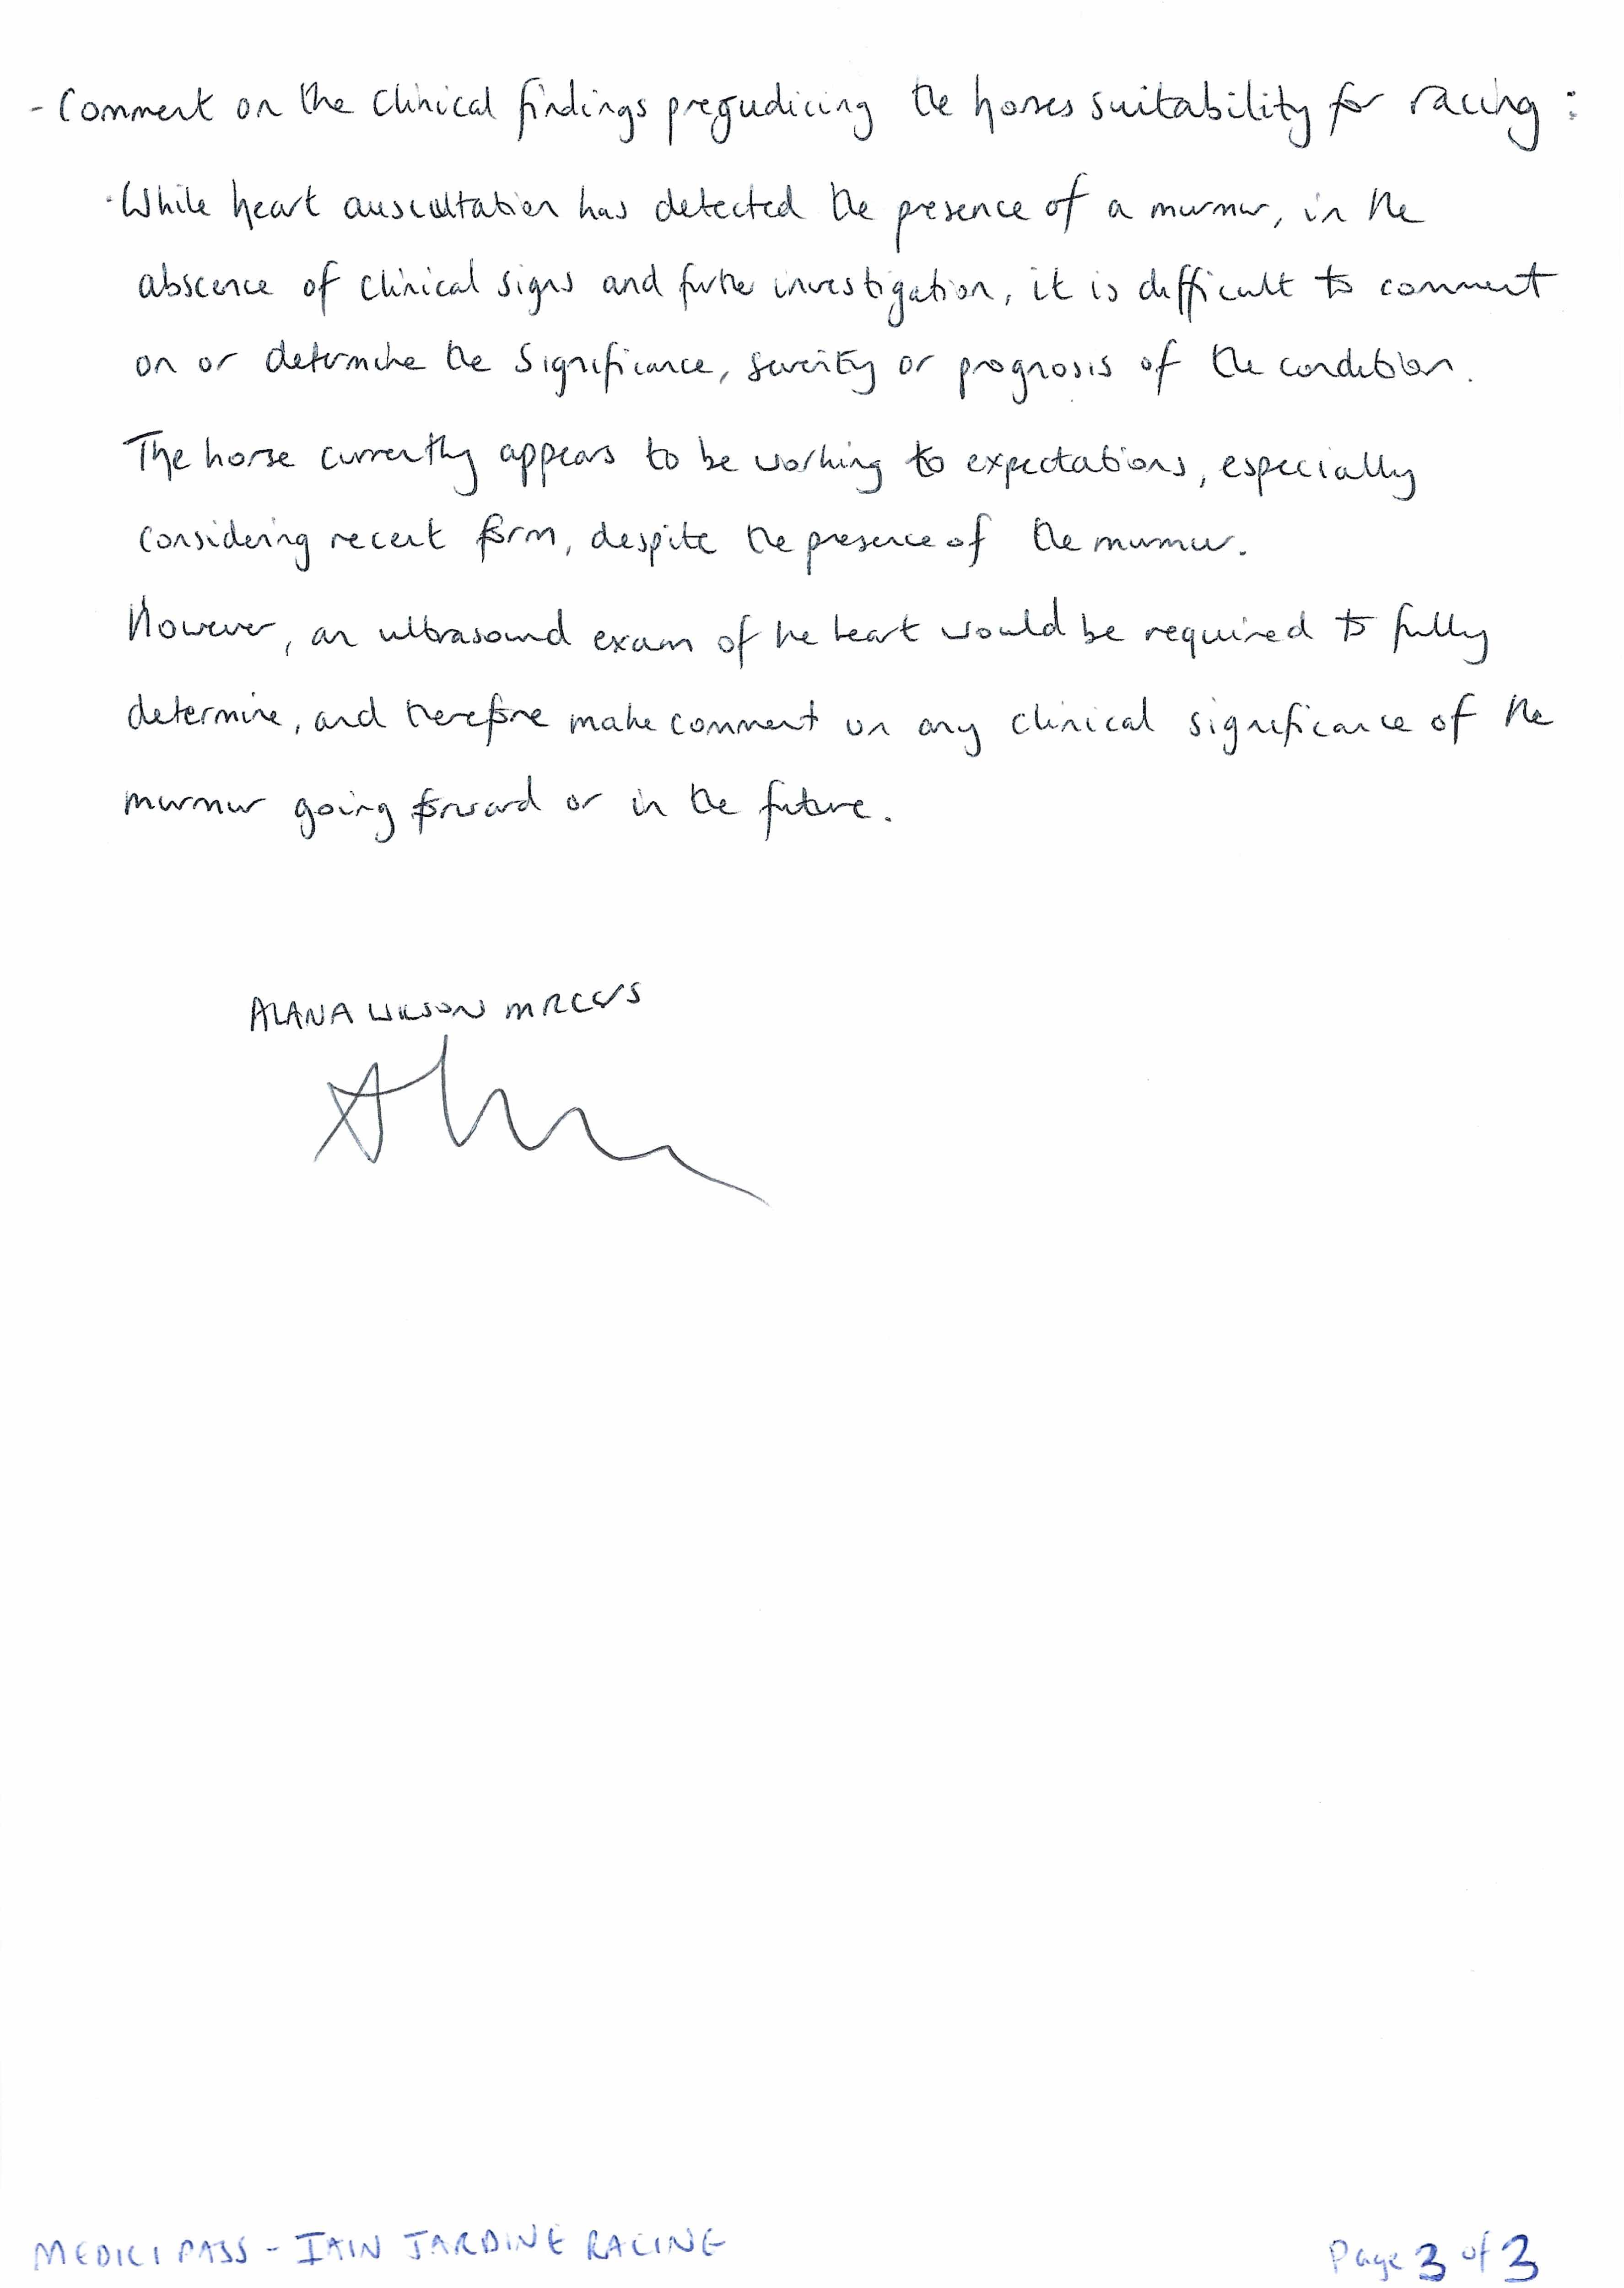 - Comment on the clinical findings pregudicing the horses suitability for racing :
· While heart auscultation has detected the presence of a murmur, in the
abscence of clinical signs and further investigation, it is difficult to comment
on or determine the significance, severity or prognosis of the condition.
The horse currently appears to be working to expectations, especially
considering recent form, despite the presence of the murmur.
However, an ultrasound exam of the heart would be required to fully
determine, and therefore make comment on any clinical significance of the
murmur going forward or in the future.
ALANA WILSON MRCVS
MEDICI PASS - IAIN JARDINE RACING
Page 3 of 3